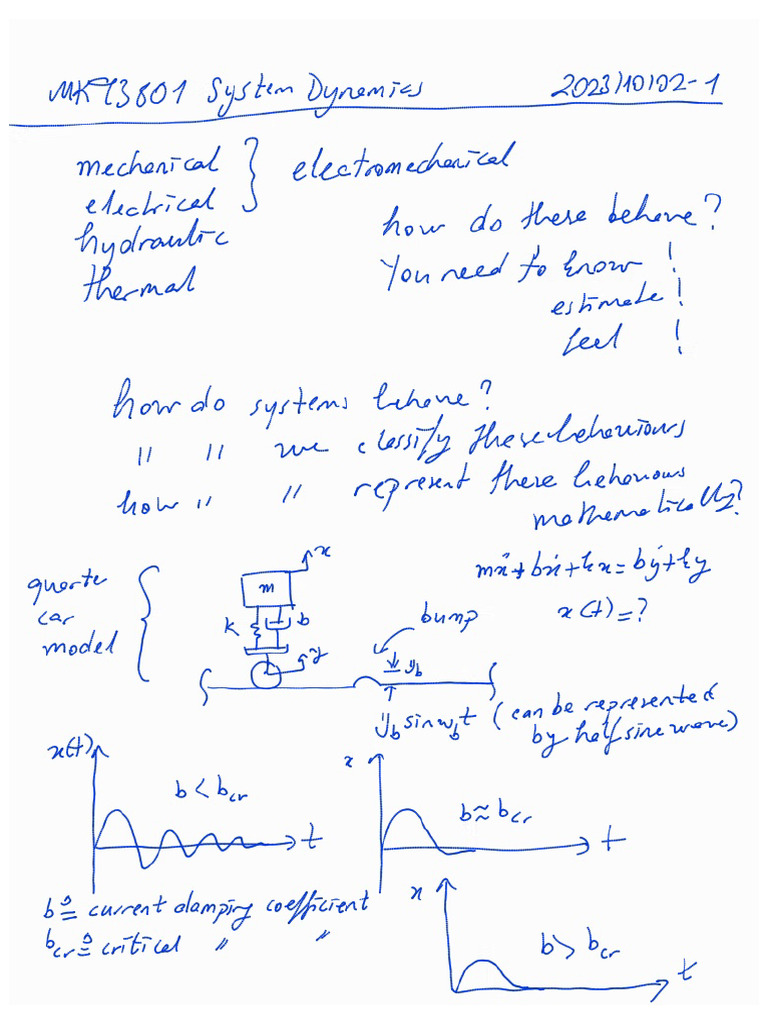 MKT3801 System Dynamics 2023/10/02-1
mechanical
electrical } electromechanical
hydraulic
thermal
how do these behave?
You need to know !
estimate !
feel !
how do systems behave?
" " we classify these behaviours
how " " represent these behavious
mathematically?
quarte
car
model
x
m
k
b
y
mẍ+bẋ+kx=bẏ+ky
x(t)=?
bump
y_b
y_b sinω_b t (can be represented
by half sine wave)
x(t)
b<b_cr
t
x
b≈b_cr
t
b ≙ current damping coefficient
b_cr ≙ critical " "
x
b>b_cr
t